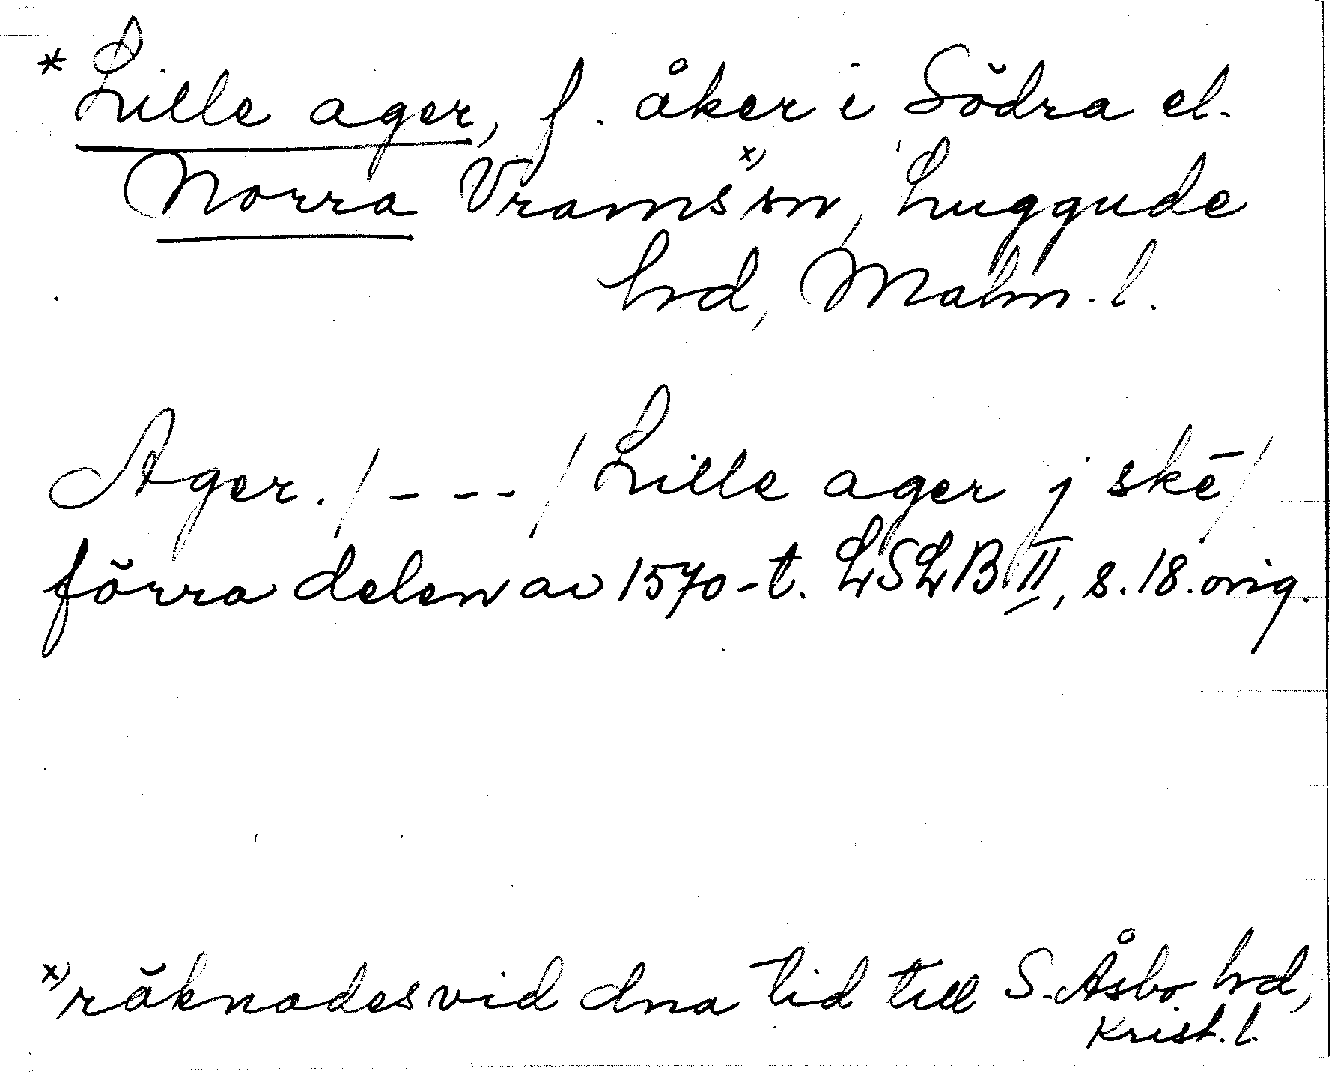 * Lille ager, f. åker i Södra el.
Norra Vrams x) sn, Luggude
hd, Malm. l.
Ager. / - - - / Lille ager j skē /
förra delen av 1570-t. LSLB II, s. 18. orig.
x) räknades vid dna tid till S. Åsbo hd,
Krist. l.